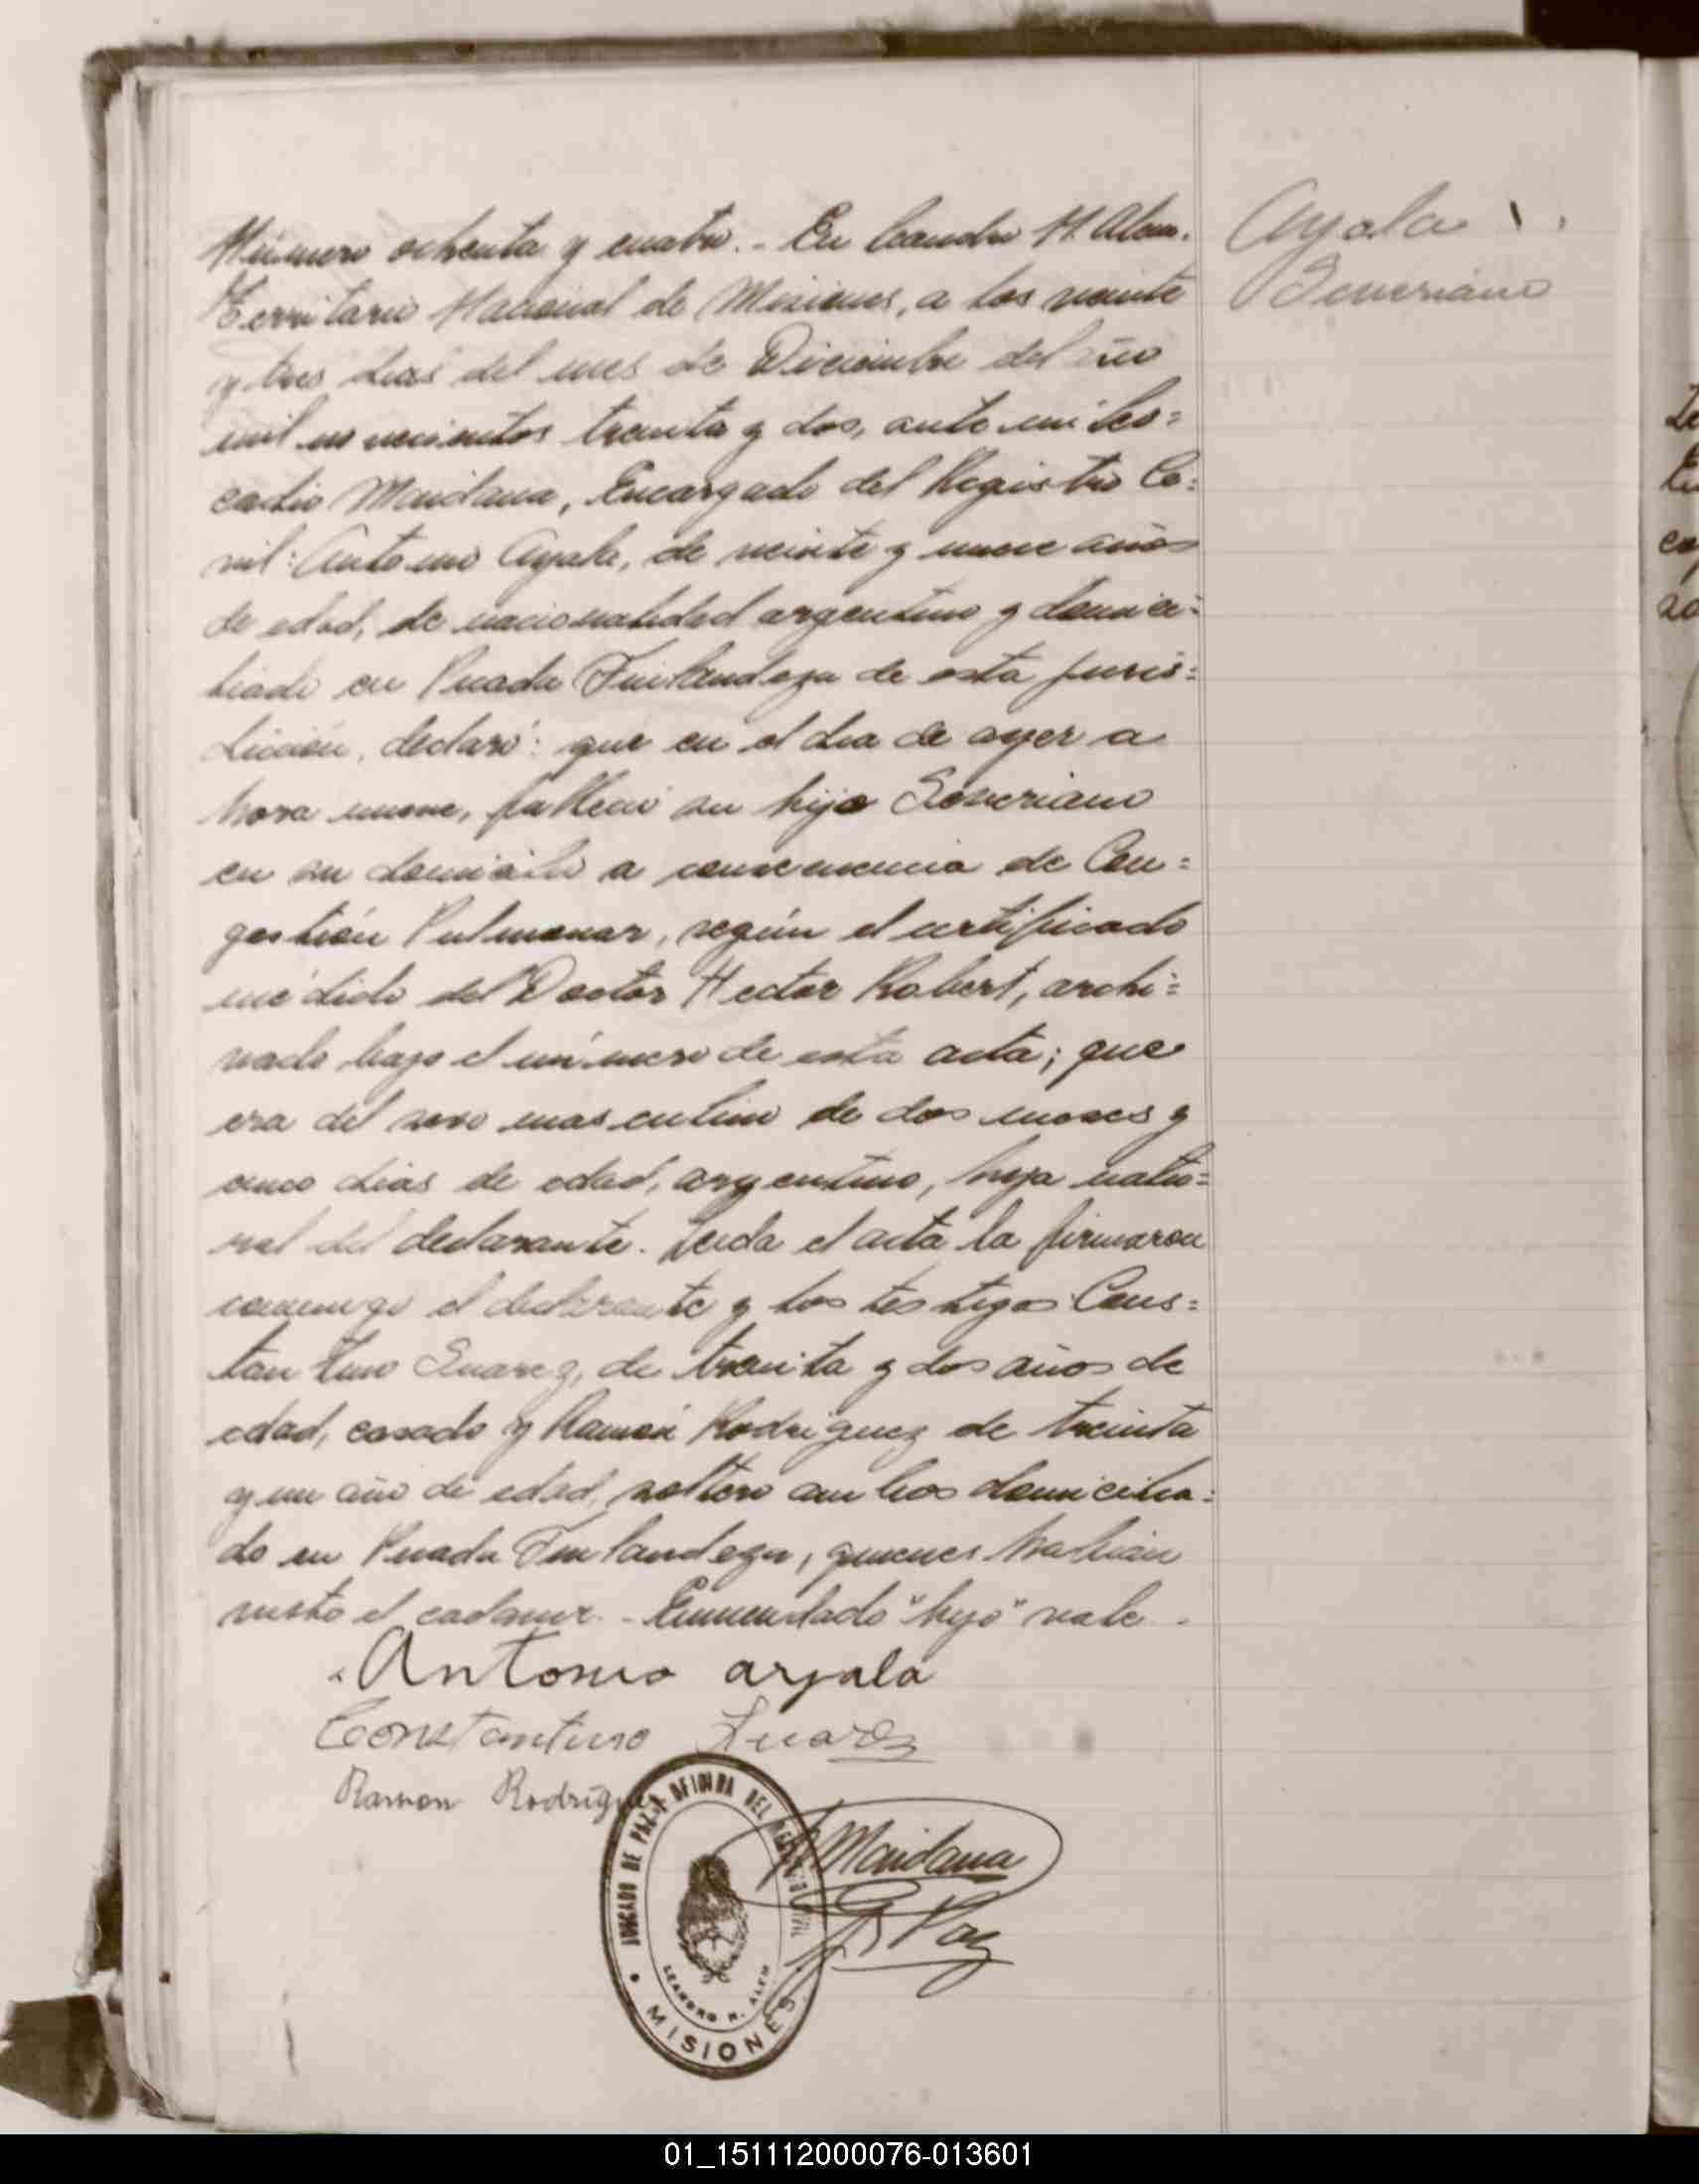 Número ochenta y cuatro. - En Leandro N. Alem.
Territorio Nacional de Misiones, a los veinte
y tres dias del mes de Diciembre del año
mil novecientos treinta y dos, ante mi Leo=
cadio Maidana, Encargado del Registro Ci=
vil: Antonio Ayala, de veinte y nueve años
de edad, de nacionalidad argentino y domici=
liado en Picada Finlandeza de esta juris=
dicción, declaró: que en el dia de ayer a
hora nueve, falleció su hijo Severiano
en su domicilio a consecuencia de Con=
gestión Pulmonar, según el certificado
médido del Doctor Hector Robert, archi=
vado bajo el número de esta acta; que
era del sexo masculino de dos meses y
cinco dias de edad, argentino, hijo natu=
ral del declarante. Leida el acta la firmaron
conmigo el declarante y los testigos Cons=
tantino Suarez, de treinta y dos años de
edad, casado y Ramón Rodriguez de treinta
y un año de edad, soltero ambos domicilia=
do en Picada Finlandeza, quienes habian
visto el cadaver. - Enmendado "hijo" vale -
Antonio ayala
Constantino Suarez
Ramon Rodrigue
L Maidana
J. Paz
JUZGADO DE PAZ Y OFICINA DEL REGISTRO CIVIL
LEANDRO N. ALEM
MISIONES
Ayala
Severiano
01_151112000076-013601